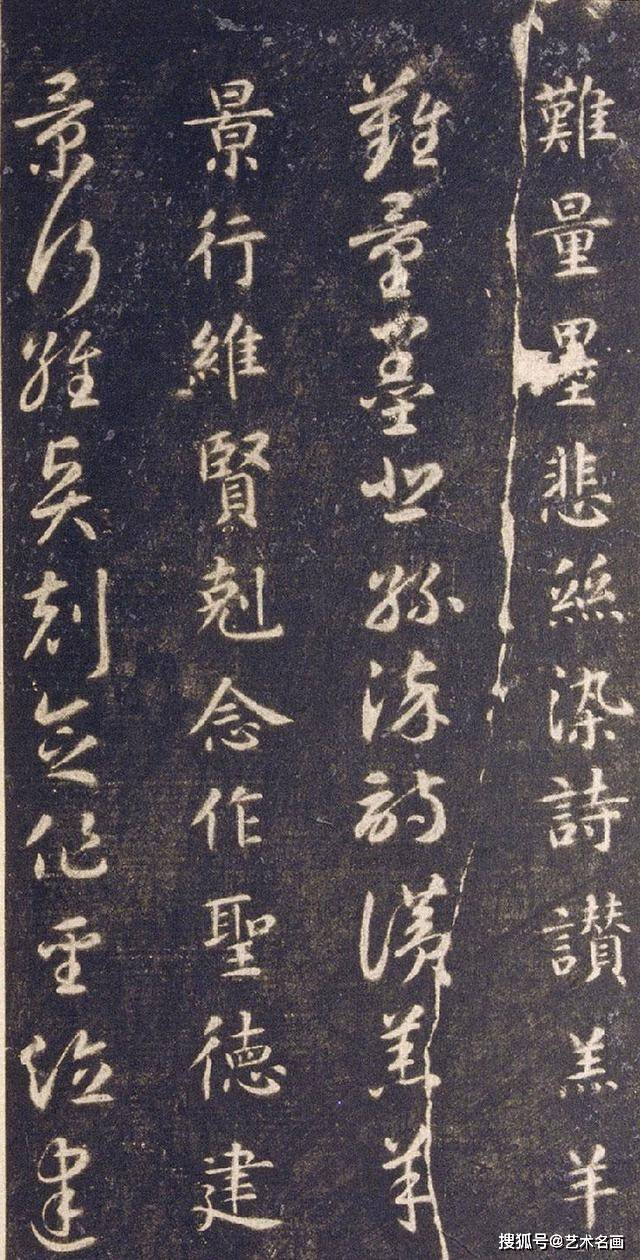 難量墨悲絲染詩讃羔羊
難量墨悲絲染詩讃羔羊
景行維賢剋念作聖德建
景行維賢剋念作聖德建
搜狐号@艺术名画